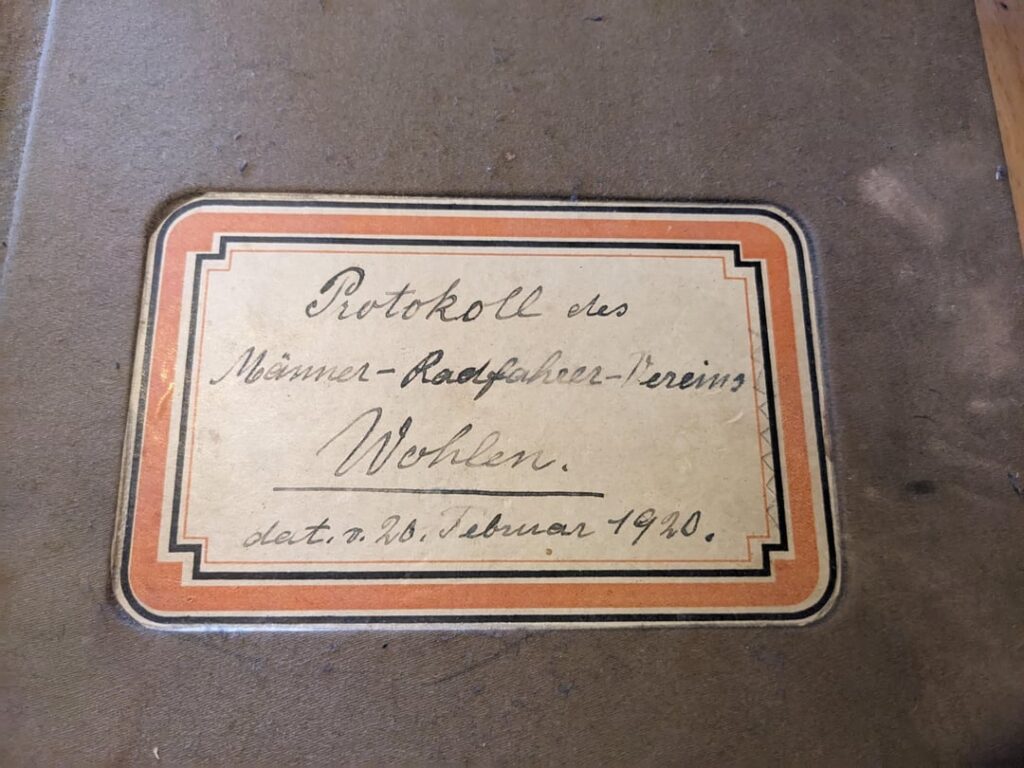 Protokoll des
Männer-Radfahrer-Vereins
Wohlen.
dat. v. 20. Februar 1920.